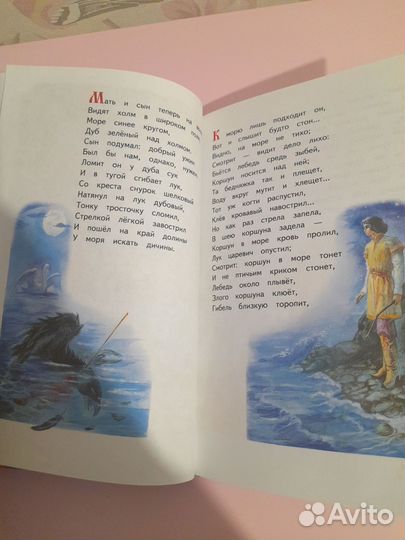 Мать и сын теперь на
Видят холм в широком поле,
Море синее кругом,
Дуб зелёный над холмом.
Сын подумал: добрый ужин
Был бы нам, однако, нужен.
Ломит он у дуба сук
И в тугой сгибает лук,
Со креста снурок шелковый
Натянул на лук дубовый,
Тонку тросточку сломил,
Стрелкой лёгкой завострил
И пошёл на край долины
У моря искать дичины.
К морю лишь подходит он,
Вот и слышит будто стон...
Видно, на море не тихо;
Смотрит — видит дело лихо:
Бьётся лебедь средь зыбей,
Коршун носится над ней;
Та бедняжка так и плещет,
Воду вкруг мутит и хлещет...
Тот уж когти распустил,
Клёв кровавый навострил...
Но как раз стрела запела,
В шею коршуна задела —
Коршун в море кровь пролил,
Лук царевич опустил;
Смотрит: коршун в море тонет
И не птичьим криком стонет,
Лебедь около плывёт,
Злого коршуна клюёт,
Гибель близкую торопит,
Avito